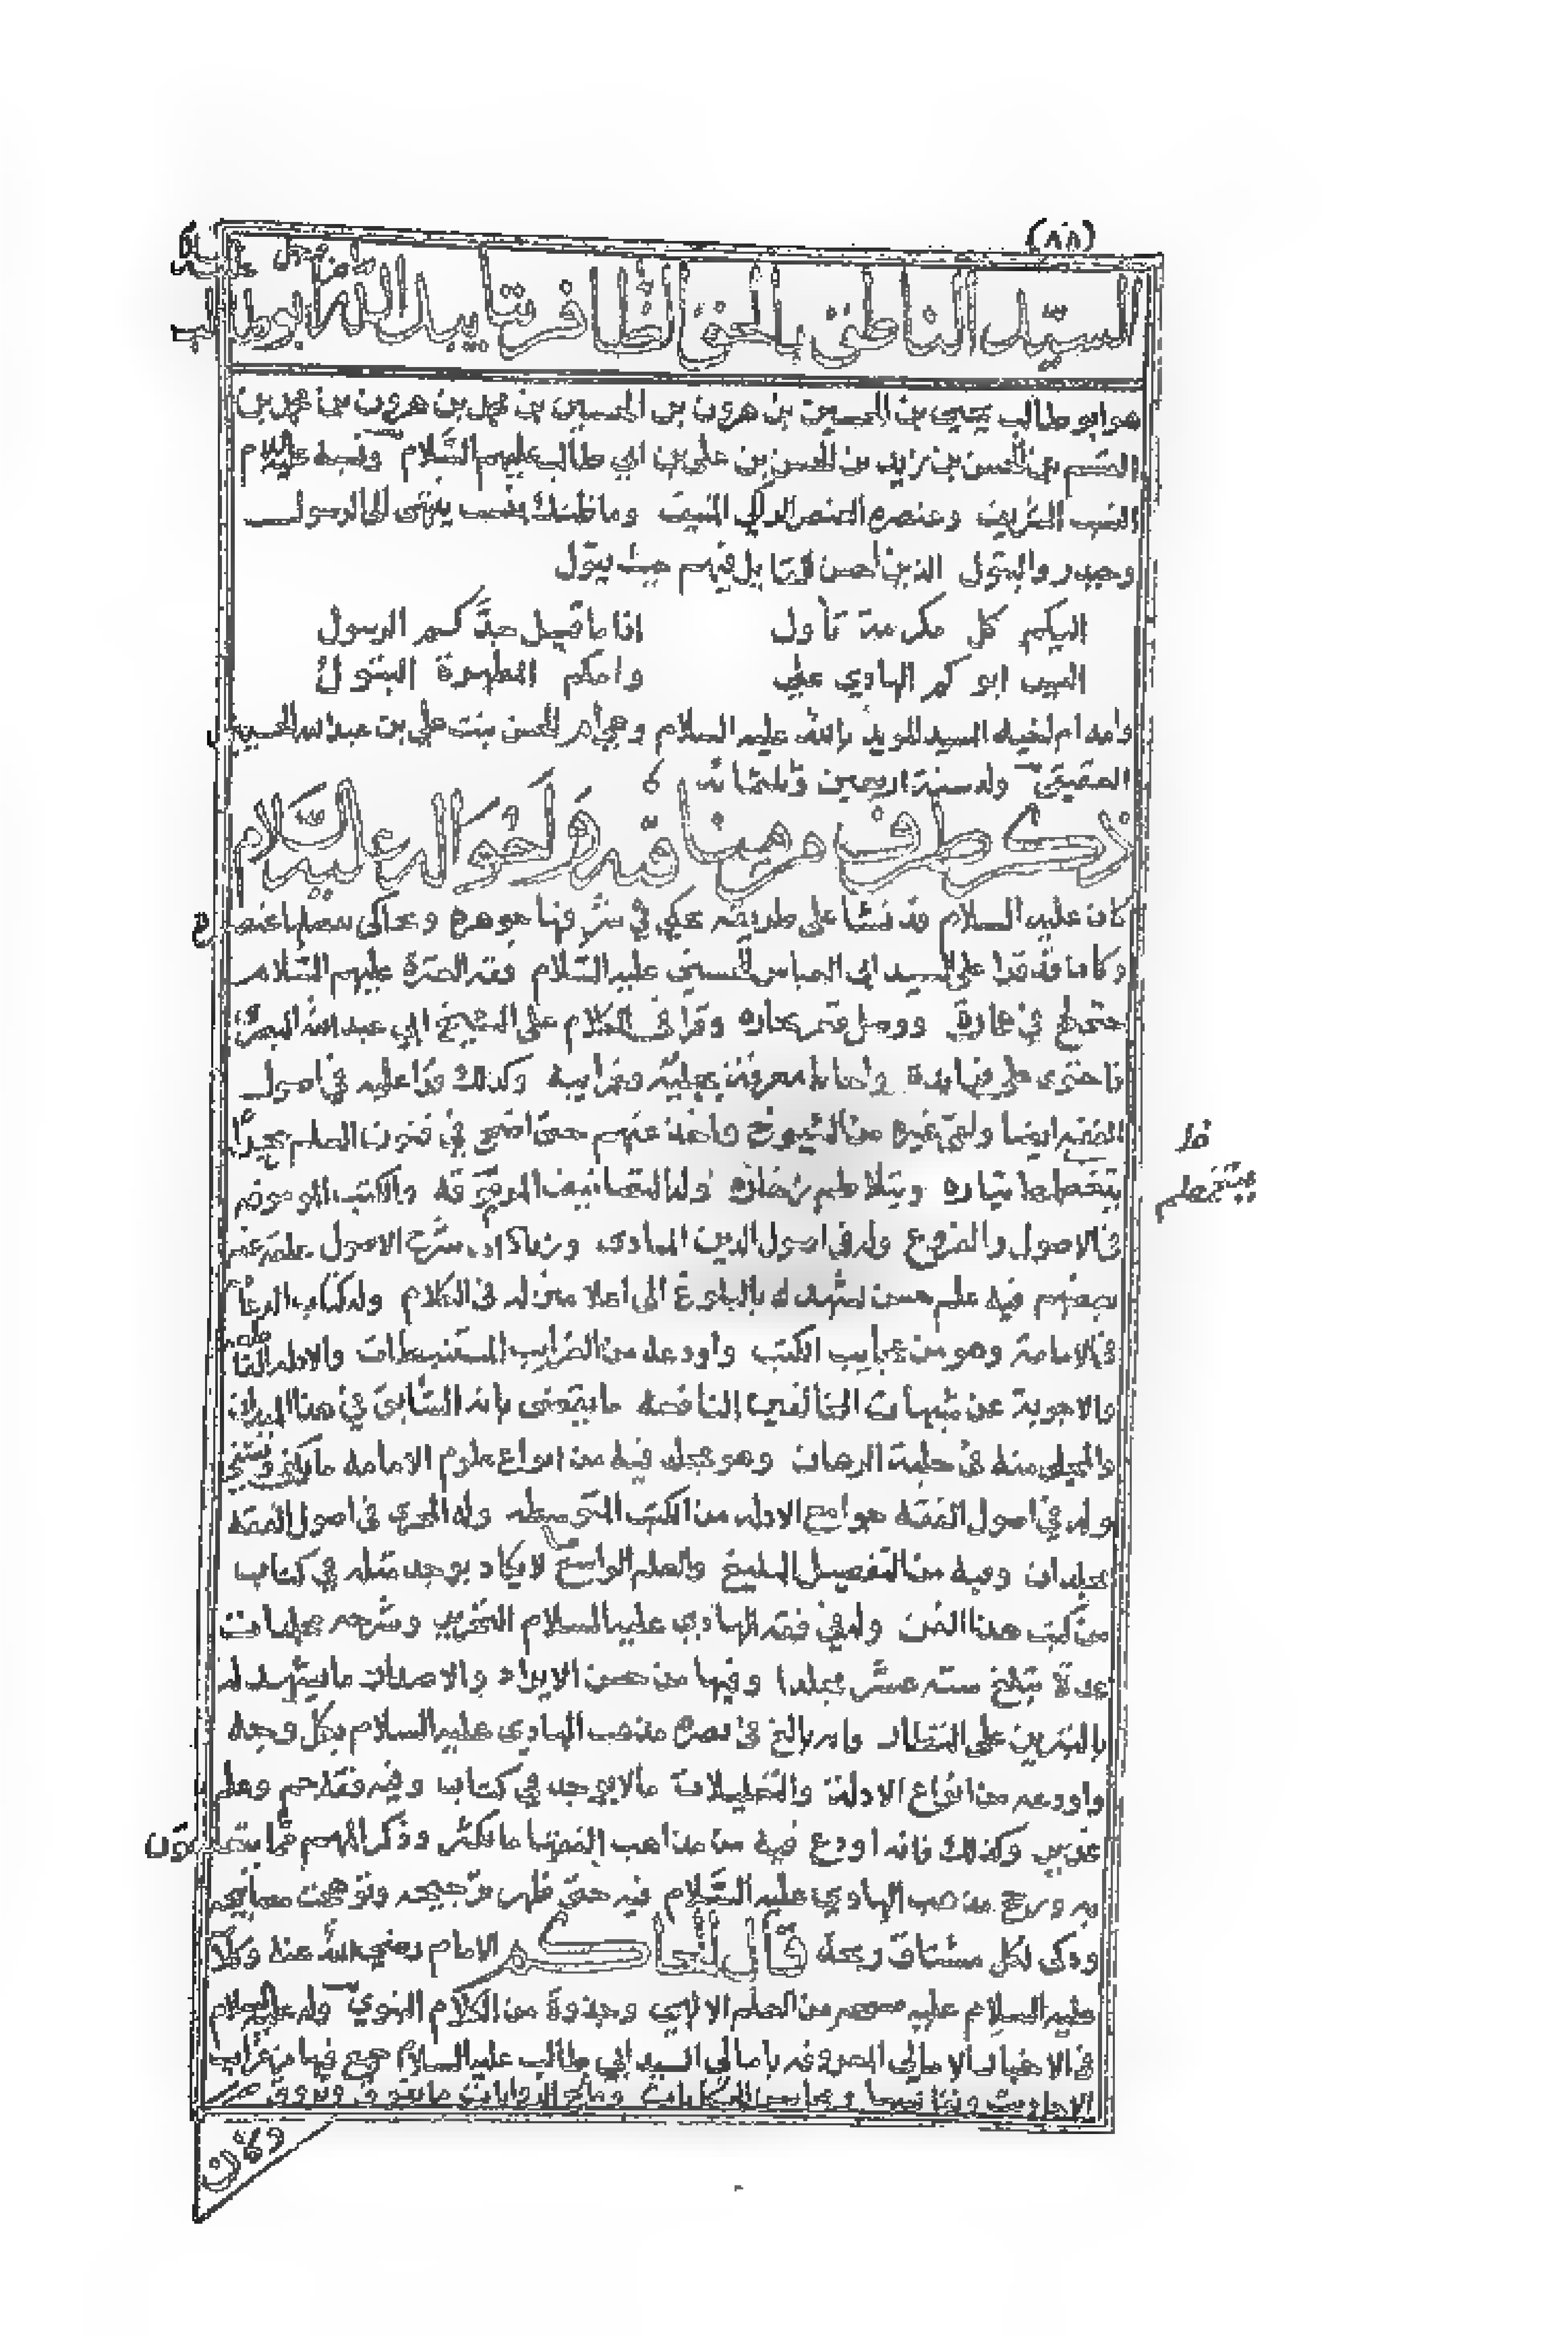 (٨٨)
السيد الناطق بالحق الظافر بتاييد الله ابوطالب
هو ابو طالب يحيى بن الحسين بن هرون بن الحسين بن محمد بن هرون بن محمد بن
القسم بن الحسن بن زيد بن الحسن بن علي بن ابي طالب عليهم السلام ونسبه عليه السلام
النسب الشريف وعنصره العنصر الزكي المنيف وما ظنك بنسب ينتهى الى الرسول
وحيدر والبتول الذين احسن القايل فيهم حيث يقول
اليكم كل مكرمة تأول اذا ما قيل جدكم الرسول
اليس ابوكم الهادي علي وامكم المطهرة البتول
وامه ام اخيه السيد المويد بالله عليه السلام وهي ام الحسن بنت علي بن عبدالله الحسيني
العقيقي ولد سنة اربعين وثلثمائة
ذكر طرف من مناقبه واحواله عليه السلام
كان عليه السلام قد نشا على طريقة يحكي في شرفها جوهره ويحاكى بفضلها عنصره
وكان قد قرا على السيد ابي العباس الحسني عليه السلام فقه العترة عليهم السلام
حتى في غماره ووصل قعر بحاره وقرا في الكلام على الشيخ ابي عبدالله البصري
فاحتوى على فرايده واحاط معرفة بجليه وغرايبه وكذلك قرا عليه في اصول
الفقه ايضا ولقي غيره من الشيوخ واخذ عنهم حتى اضحى في فنون العلم بحرا
يتغطمط تياره ويتلاطم زخاره وله التصانيف المرموقه والكتب الموموقه
ظ
يتغطمط
في الاصول والفروع وله في اصول الدين المبادى وزيادات شرح الاصول علقه عنه
بعضهم فيه علم حسن يشهد له بالبلوغ الى اعلا منزله في الكلام وله كتاب الدعامة
في الامامة وهو من عجايب الكتب واودعه من الغرايب المستنبطات والادله القاطعة
والاجوبة عن شبهات المخالفين النافعة ما يقضى بانه السابق في هذا الميدان
والمجلى منه في حلبة الرهان وهو مجلد فيه من انواع علوم الامامه ما يكفي ويشفي
وله في اصول الفقه جوامع الادله من الكتب المتوسطه وله المجزي في اصول الفقه
مجلدان وفيه من التفصيل البليغ والعلم الواسع لا يكاد يوجد مثله في كتاب
من كتب هذا الفن وله في فقه الهادي عليه السلام التحرير وشرحه مجلدات
عدة تبلغ ستة عشر مجلدا وفيها من حسن الايراد والاصدار ما يشهد له
بالتبريز على النظار وانه بالغ في نصرة مذهب الهادى عليه السلام بكل وجه
واودعه من انواع الادلة والتعليلات ما لا يوجد في كتاب وفيه فقه جم وعلم
غزير وكذلك فانه اودع فيه من مذاهب الفقها ما يكثر وذكر المهم مما يتعلقون
به ورجح مذهب الهادي عليه السلام فيه حتى ظهر ترجيحه وتوجهت معانيه
وذكى لكل مشتاق ريحه قال الحاكم الامام رضي الله عنه وكلامه
عليه السلام عليه مسحه من العلم الالهي وجذوة من الكلام النبوي وله عليه السلام
في الاخبار الامالي المعروفه بامالي السيد ابي طالب عليه السلام جمع فيها من غرايب
الاحاديث ونفايسها ومحاسن الحكايات وملح الروايات ما يفوق ويروق
وكان